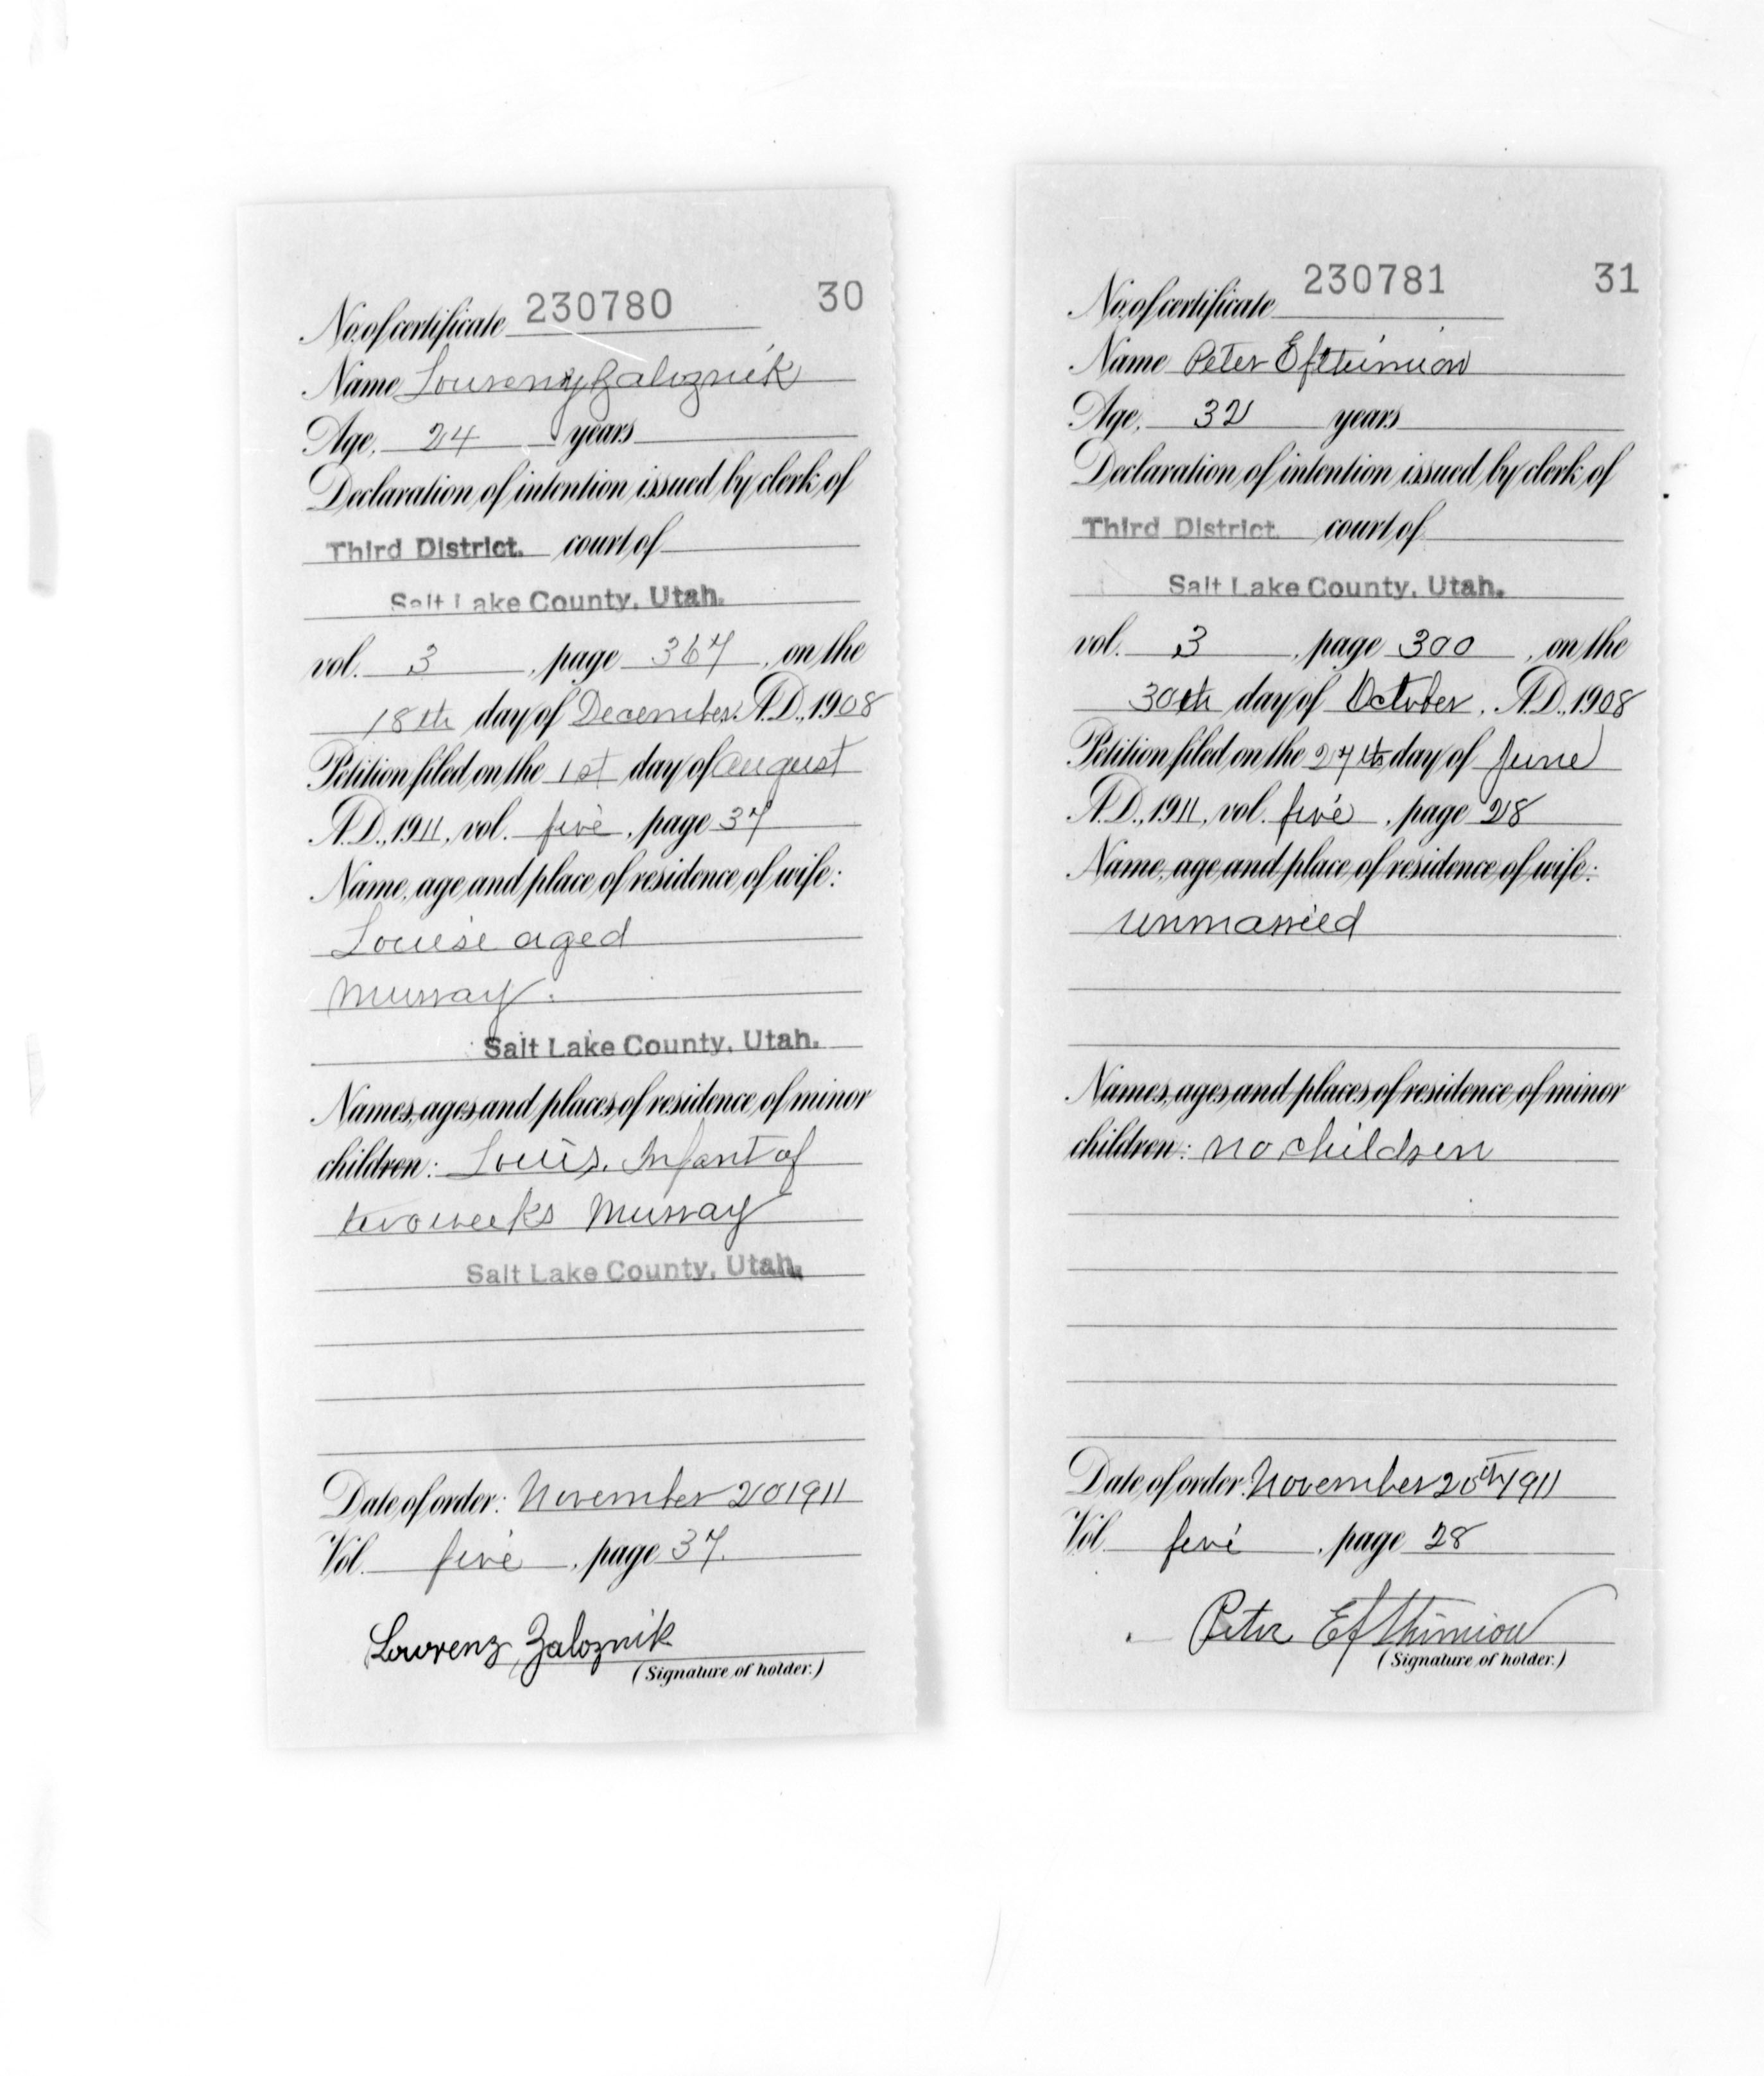 230780 30
No. of certificate
Name Lourenz Zaloznik
Age, 24 years
Declaration of intention issued by clerk of
Third District. court of
Salt Lake County, Utah.
vol. 3, page 367, on the
18th day of December A.D., 1908
Petition filed on the 1st day of August
A.D., 1911, vol. five, page 37
Name, age and place of residence of wife:
Louise aged
Murray.
Salt Lake County, Utah.
Names, ages and places of residence of minor
children: Louis. Infant of
two weeks Murray
Salt Lake County, Utah.
Date of order: November 20 1911
Vol. five, page 37.
Lowrenz Zaloznik
(Signature of holder.)
230781 31
No. of certificate
Name Peter Efthimiou
Age, 32 years
Declaration of intention issued by clerk of
Third District. court of
Salt Lake County, Utah.
vol. 3, page 300, on the
30th day of October, A.D., 1908
Petition filed on the 27th day of June
A.D., 1911, vol. five, page 28
Name, age and place of residence of wife:
unmarried
Names, ages and places of residence of minor
children: no children
Date of order: November 20th 1911
Vol. five, page 28
Peter Efthimiou
(Signature of holder.)